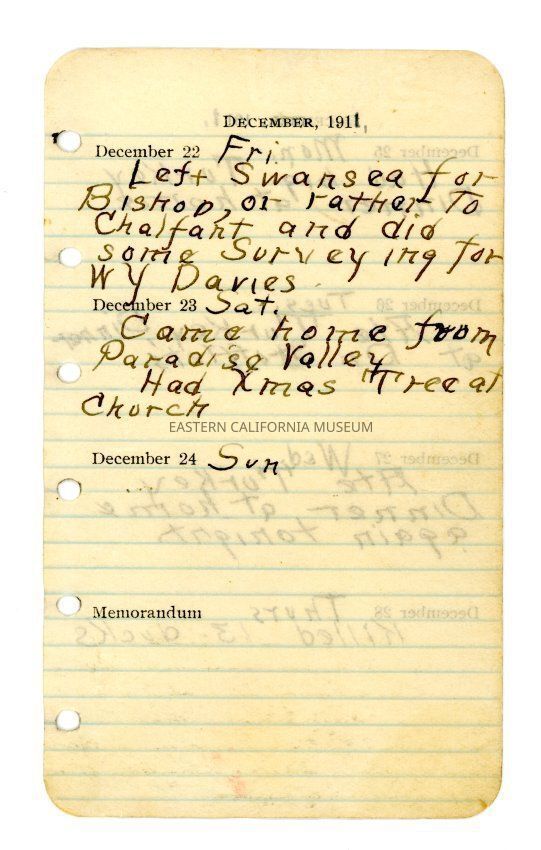 DECEMBER, 1911,
December 22 Fri.
Left Swansea for
Bishop, or rather To
Chalfant and did
some Surveying for
WY Davies
December 23 Sat.
Came home from
Paradise Valley
Had Xmas Tree at
Church
EASTERN CALIFORNIA MUSEUM
December 24 Sun
Memorandum